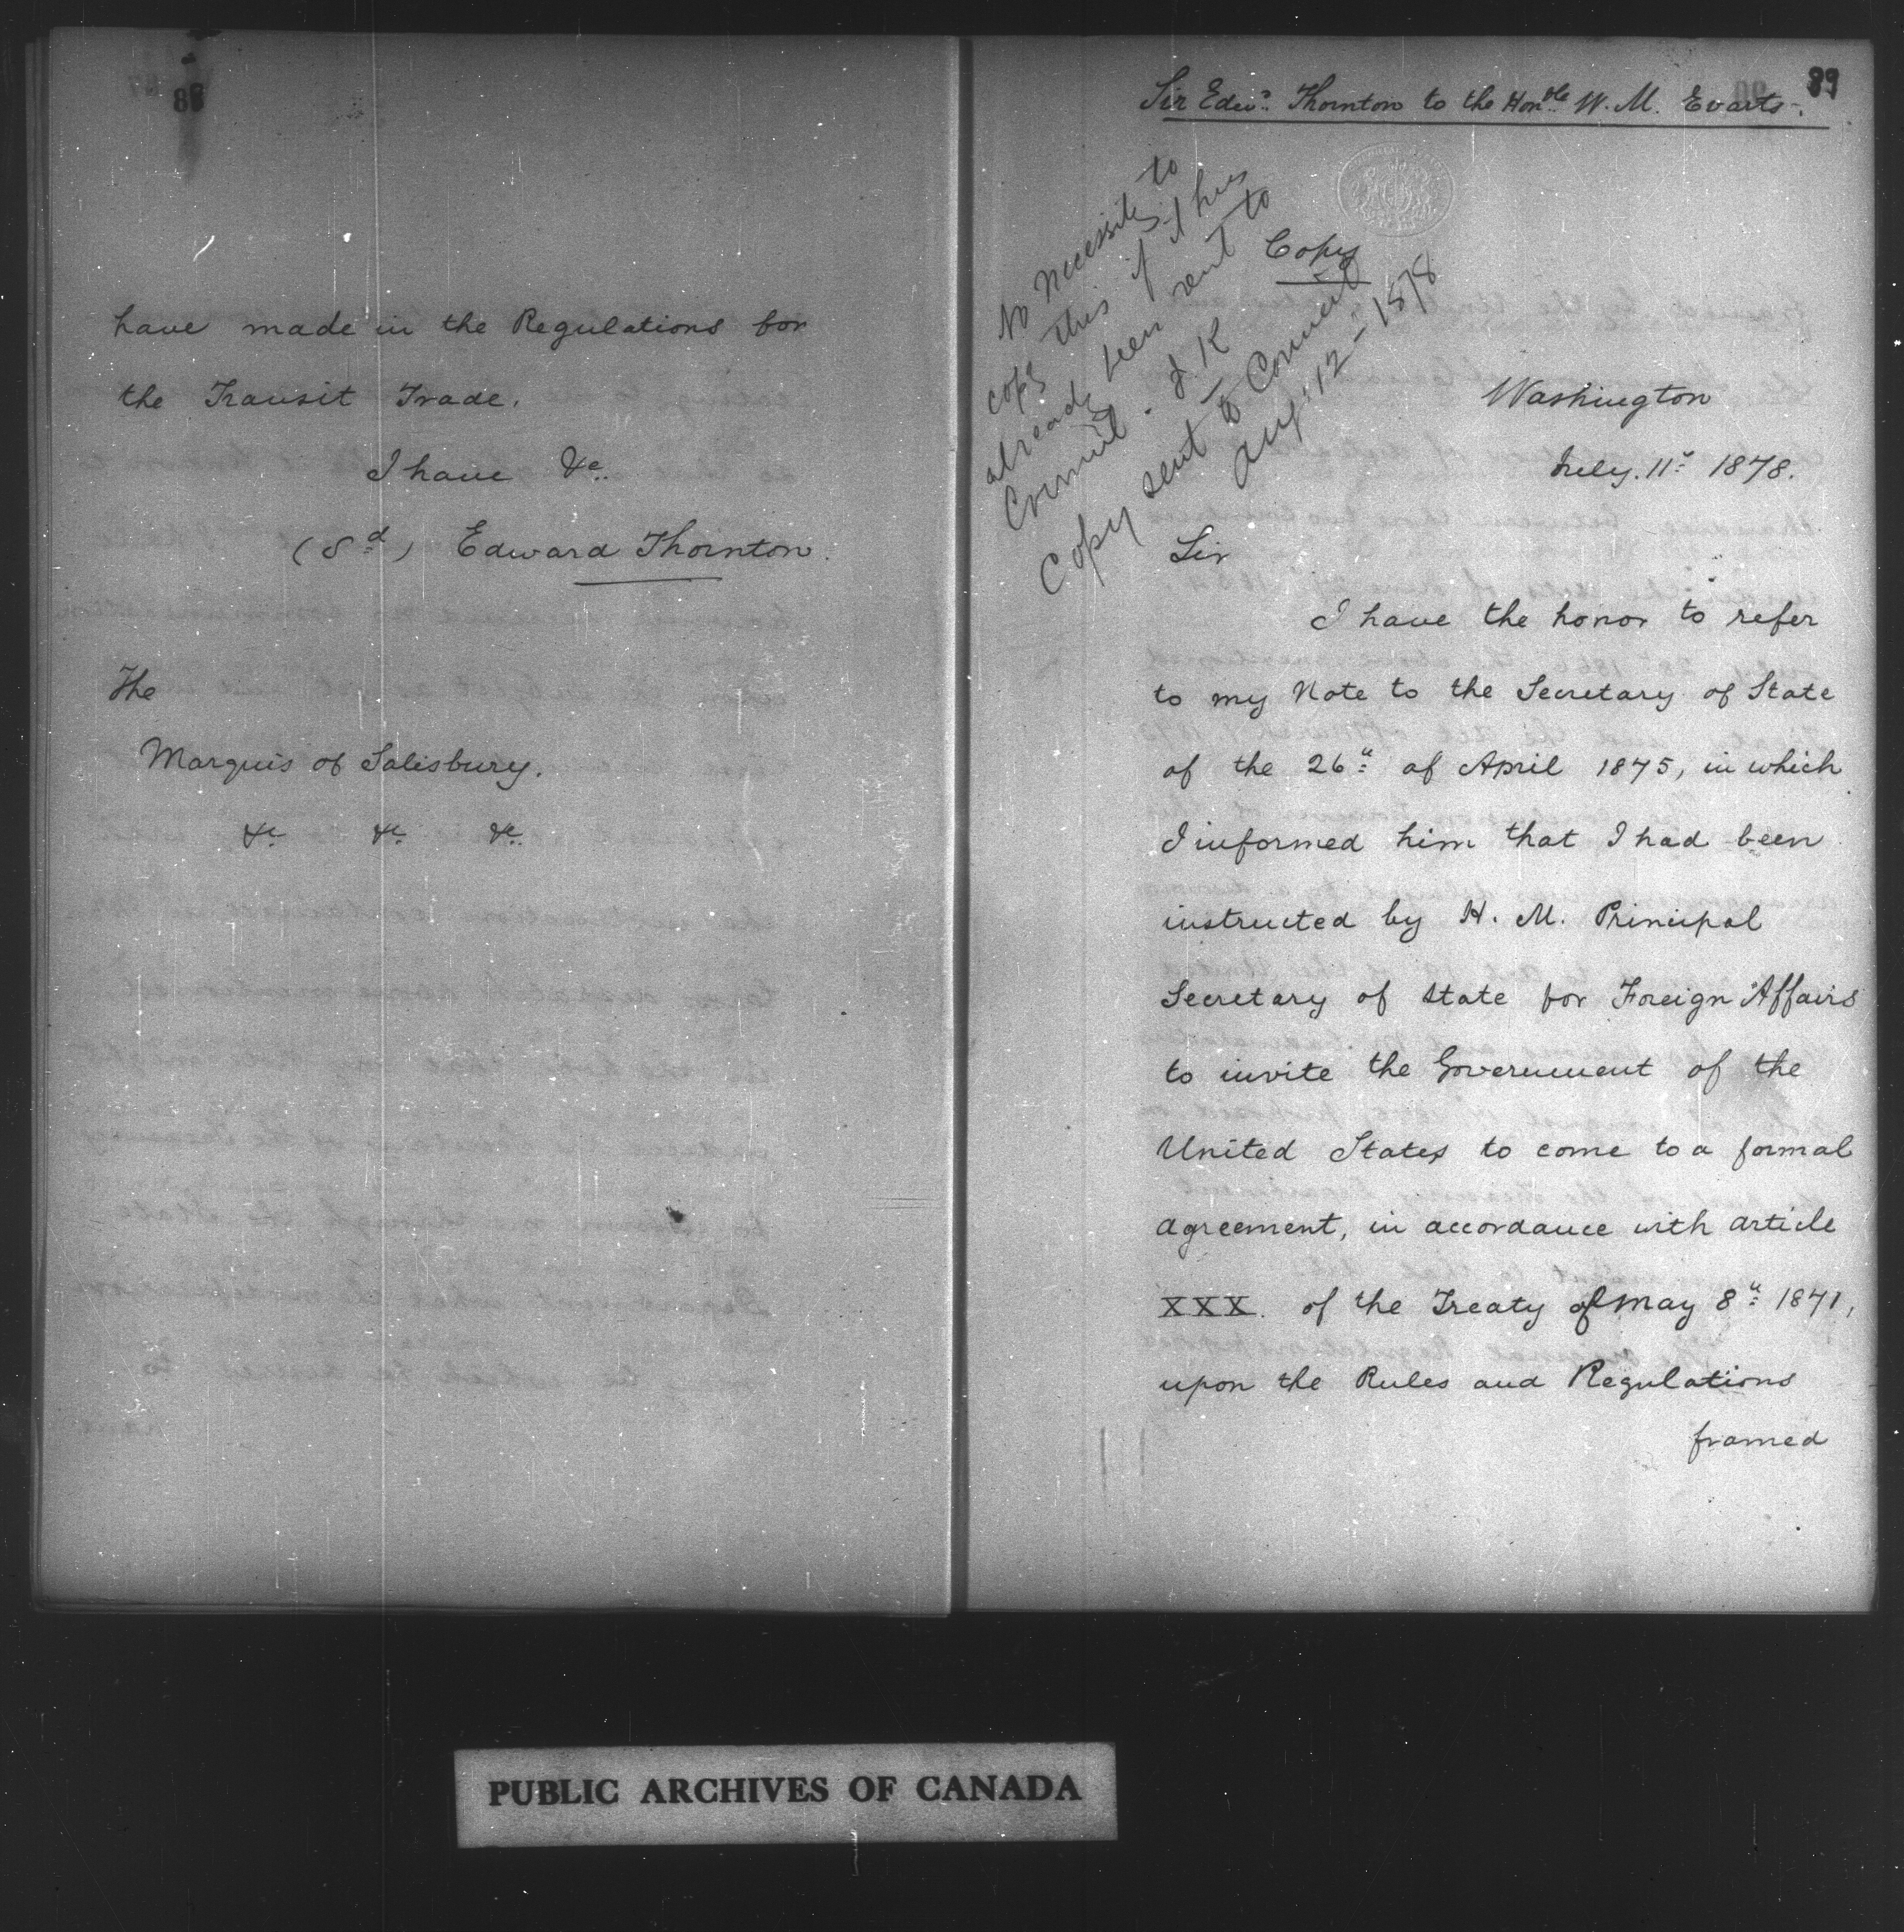 88
have made in the Regulations for
the Transit Trade.
I have &c.
(Sd) Edward Thornton.
The
Marquis of Salisbury.
&c. &c. &c.
89
Sir Edwd. Thornton to the Honble W. M. Evarts.
No necessity to
copy this if it has
already been sent to
Council. J. K
Copy sent to Council
Aug: 12 – 1878
Copy
Washington
July. 11th 1878.
Sir
I have the honor to refer
to my Note to the Secretary of State
of the 26th of April 1875, in which
I informed him that I had been
instructed by H. M. Principal
Secretary of State for Foreign Affairs
to invite the Government of the
United States to come to a formal
agreement, in accordance with article
XXX. of the Treaty of May 8th 1871,
upon the Rules and Regulations
framed
PUBLIC ARCHIVES OF CANADA